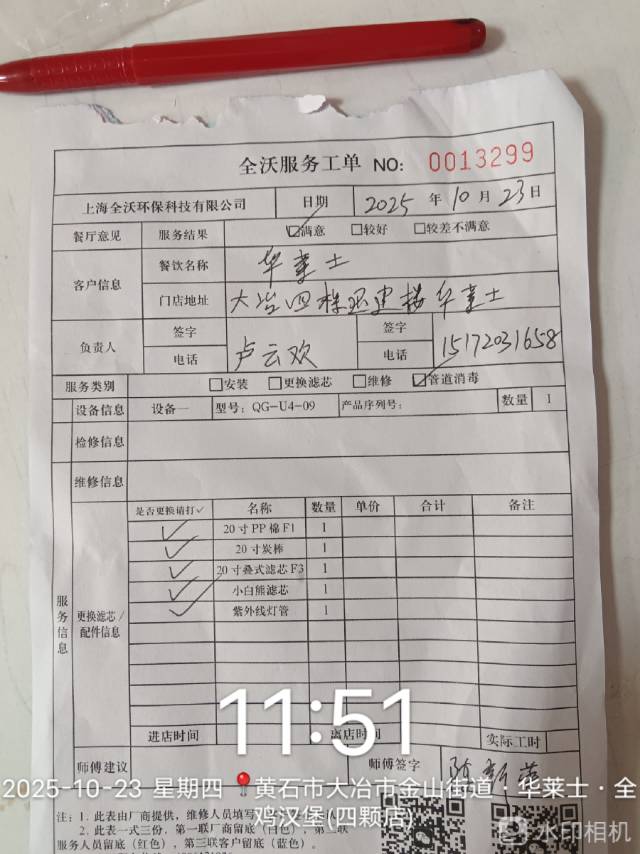 全沃服务工单 NO: 0013299
上海全沃环保科技有限公司 日期 2025 年 10 月 23 日
餐厅意见 服务结果 ☑满意 □较好 □较差不满意
客户信息 餐饮名称 华莱士
门店地址 大冶四棵 建楼华莱士
负责人 签字 签字
电话 卢云欢 电话 15172031658
服务类别 □安装 □更换滤芯 □维修 ☑管道消毒
设备信息 设备一 型号: QG-U4-09 产品序列号: 数量 1
检修信息
维修信息
服务信息
更换滤芯/配件信息
是否更换请打✓ 名称 数量 单价 合计 备注
✓ 20寸PP棉F1 1
✓ 20寸炭棒 1
✓ 20寸叠式滤芯F3 1
✓ 小白熊滤芯 1
✓ 紫外线灯管 1
11:51
进店时间 离店时间 实际工时
师傅建议 师傅签字
2025-10-23 星期四 黄石市大冶市金山街道·华莱士·全
鸡汉堡(四颗店)
注: 1. 此表由厂商提供, 维修人员填写
2. 此表一式三份, 第一联厂商留底(白色), 第二联
服务人员留底(红色), 第三联客户留底(蓝色)。
水印相机